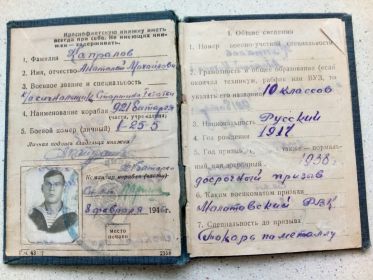 Краснофлотскую книжку иметь
всегда при себе. Не имеющих книж-
ки — задерживать.
1. Фамилия
Капралов
2. Имя, отчество Анатолий Михайлович
3. Военное звание и специальность
Старшина
4. Наименование корабля 921 батарея
(части)
5. Боевой номер (личный) Г-25 5
Личная подпись владельца книжки
Командир корабля (части)
8 февраля 194
место
печати
1. Общие сведения
1. Номер военно-учетной специальности
2. Грамотность и общее образование (если
окончил техникум, рабфак или ВУЗ, то
указать его название)
10 классов
3. Национальность Русский
4. Год рождения 1917
5. Год призыва
1938
досрочный призыв
6. Каким военкоматом призван
Молотовский РВК
7. Специальность до призыва
Токарь по металлу